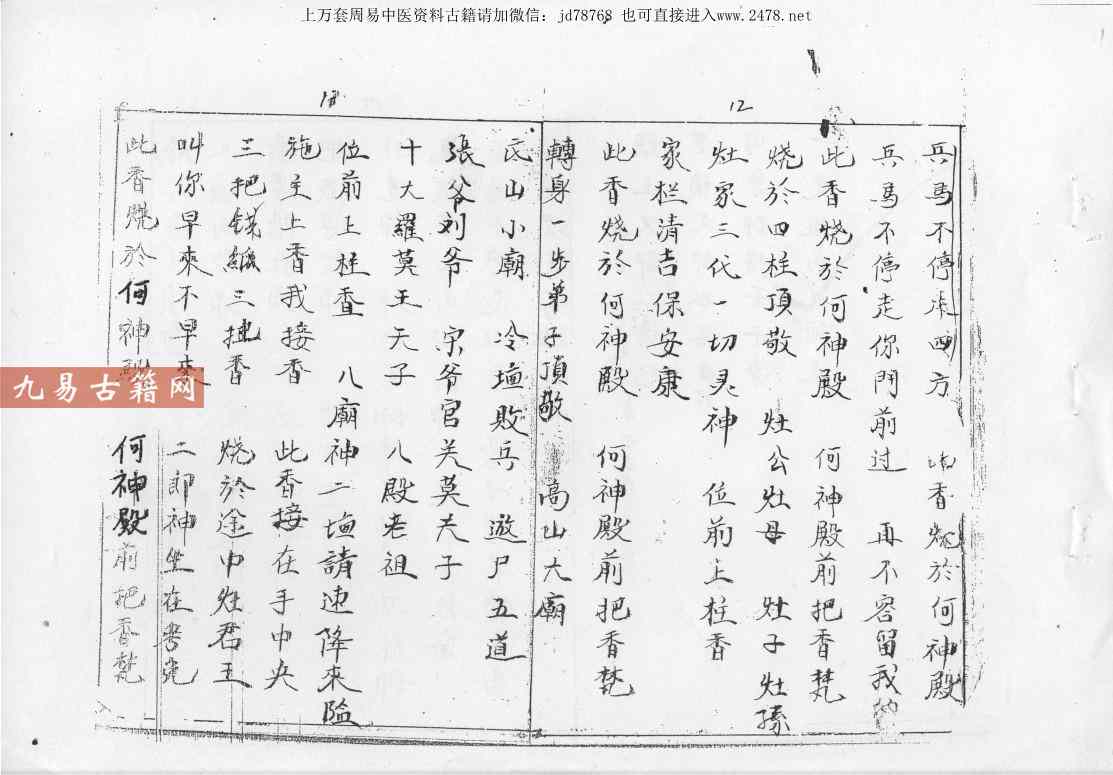 上万套周易中医资料古籍请加微信：jd78768 也可直接进入www.2478.net
12
兵馬不停来四方 此香烧於何神殿
兵馬不停走你門前过 再不容留我的
此香烧於何神殿 何神殿前把香焚
烧於四柱頂敬 灶公灶母 灶子灶孫
灶家三代一切灵神 位前上柱香
家栏清吉保安康
此香烧於何神殿 何神殿前把香焚
轉身一步弟子頂敬 高山大廟
小廟 冷壇敗兵 遊尸五道
張爷刘爷 宗爷官关莫夫子
十大羅莫王天子 八殿老祖
位前上柱香 八廟神二壇請速降來臨
施主上香我接香 此香接在手中央
三把钱纸三挑香 烧於途中灶君王
叫你早來不早來 二郎神坐在
此香烧於何神殿 何神殿前把香焚
九易古籍网